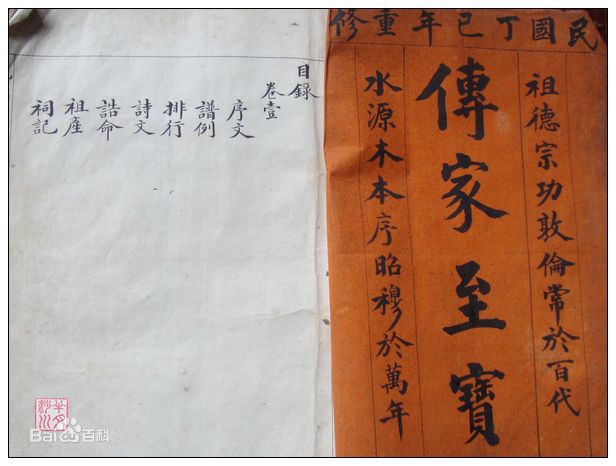 民國丁巳年重修
祖德宗功敦倫常於百代
傳家至寶
水源木本序昭穆於萬年
目錄
卷壹
序文
譜例
排行
詩文
誥命
祖産
祠記
Bai百科